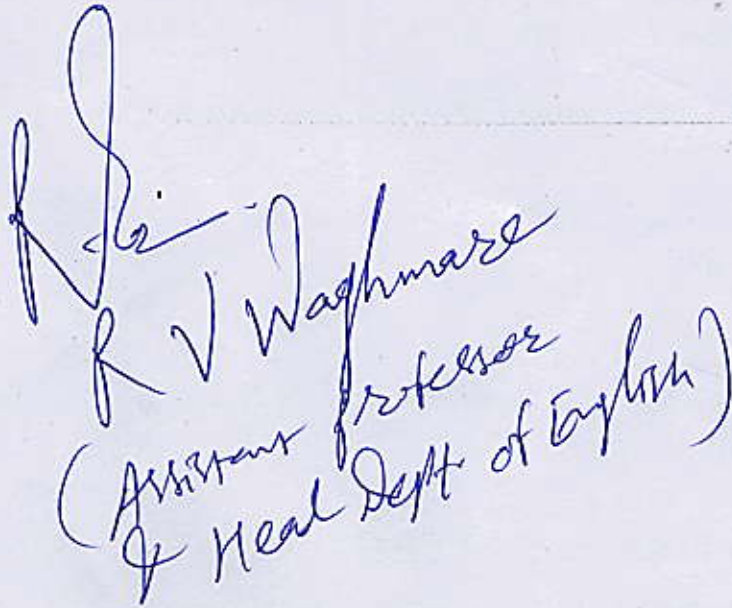 R V Waghmare
(Assistant Professor
& Head Dept. of English)